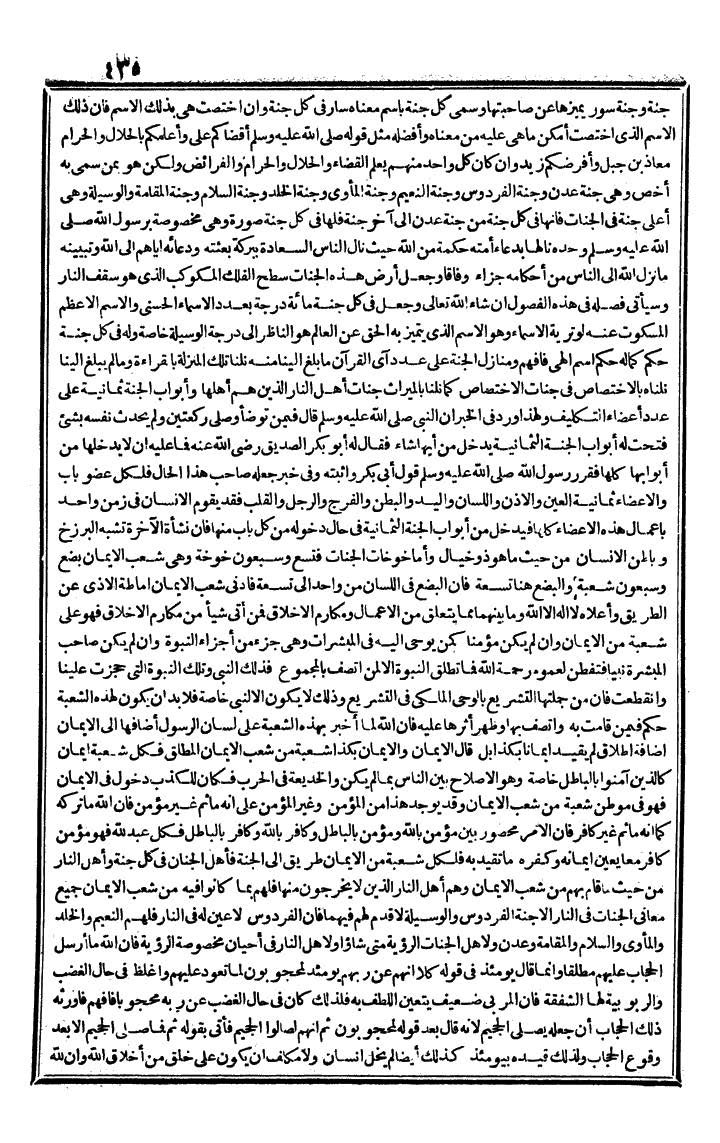 ٤٣٥
جنة وجنة سور يميزها عن صاحبتها وسمى كل جنة باسم معناه سار فى كل جنة وان اختصت هى بذلك الاسم فان ذلك
الاسم الذى اختصت أمكن ما هى عليه من معناه وأفضله مثل قوله صلى الله عليه وسلم أقضاكم على وأعلمكم بالحلال والحرام
معاذ بن جبل وأفرضكم زيد وان كان كل واحد منهم يعلم القضاء والحلال والحرام والفرائض ولكن هو بمن سمى به
أخص وهى جنة عدن وجنة الفردوس وجنة النعيم وجنة المأوى وجنة الخلد وجنة السلام وجنة المقامة والوسيلة وهى
أعلى جنة فى الجنات فانها فى كل جنة من جنة عدن الى آخر جنة فلها فى كل جنة صورة وهى مخصوصة برسول الله صلى
الله عليه وسلم وحده نالها بدعاء أمته حكمة من الله حيث نال الناس السعادة ببركة بعثته ودعائه اياهم الى الله وتبيينه
ما نزل الله الى الناس من أحكامه جزاء وفاقا وجعل أرض هذه الجنات سطح الفلك المكوكب الذى هو سقف النار
وسيأتى فصله فى هذه الفصول ان شاء الله تعالى وجعل فى كل جنة مائة درجة بعدد الاسماء الحسنى والاسم الاعظم
المسكوت عنه لوترية الاسماء وهو الاسم الذى يتميز به الحق عن العالم هو الناظر الى درجة الوسيلة خاصة وله فى كل جنة
حكم كماله حكم اسم الهى فافهم ومنازل الجنة على عدد آى القرآن ما بلغ الينا منه نلنا تلك المنزلة بالقراءة ومالم يبلغ الينا
نلناه بالاختصاص فى جنات الاختصاص كما نلنا بالميراث جنات أهل النار الذين هم أهلها وأبواب الجنة ثمانية على
عدد أعضاء التكليف ولهذا ورد فى الخبر ان النبى صلى الله عليه وسلم قال فيمن توضأ وصلى ركعتين ولم يحدث نفسه بشئ
فتحت له أبواب الجنة الثمانية يدخل من أيها شاء فقال له أبو بكر الصديق رضى الله عنه فما عليه ان لا يدخلها من
أبوابها كلها فقرر رسول الله صلى الله عليه وسلم قول أبى بكر واثبته وفى خبر جعله صاحب هذا الحال فلكل عضو باب
والاعضاء ثمانية العين والاذن واللسان واليد والبطن والفرج والرجل والقلب فقد يقوم الانسان فى زمن واحد
باعمال هذه الاعضاء كلها فيدخل من أبواب الجنة الثمانية فى حال دخوله من كل باب منها فان نشأة الآخرة تشبه البرزخ
وباطن الانسان من حيث ما هو ذو خيال وأما خوخات الجنات فتسع وسبعون خوخة وهى شعب الايمان بضع
وسبعون شعبة والبضع هنا تسعة فان البضع فى اللسان من واحد الى تسعة فادنى شعب الايمان اماطة الاذى عن
الطريق وأعلاه لا اله الا الله وما بينهما مما يتعلق من الاعمال ومكارم الاخلاق فمن أتى شيأ من مكارم الاخلاق فهو على
شعبة من الايمان وان لم يكن مؤمنا كمن يوحى اليه فى المبشرات وهى جزء من أجزاء النبوة وان لم يكن صاحب
المبشرة نبيا فتفطن لعموم رحمة الله فما تطلق النبوة الا لمن اتصف بالمجموع فذلك النبى وتلك النبوة التى حجزت علينا
وانقطعت فان من جملتها التشريع بالوحى الملكى فى التشريع وذلك لا يكون الا لنبى خاصة فلا بد ان يكون لهذه الشعبة
حكم فيمن قامت به واتصف بها وظهر أثرها عليه فان الله لما أخبر بهذه الشعبة على لسان الرسول أضافها الى الايمان
اضافة اطلاق لم يقيد ايمانا بكذا بل قال الايمان والايمان بكذا شعبة من شعب الايمان المطلق فكل شعبة ايمان
كالذين آمنوا بالباطل خاصة وهو الاصلاح بين الناس بما لم يكن والخديعة فى الحرب فكان للكذب دخول فى الايمان
فهو فى موطن شعبة من شعب الايمان وقد يوجد هذا من المؤمن وغير المؤمن على انه ماثم غير مؤمن فان الله ما تركه
كما انه ماثم غير كافر فان الامر محصور بين مؤمن بالله ومؤمن بالباطل وكافر بالله وكافر بالباطل فكل عبد لله فهو مؤمن
كافر معا يعين ايمانه وكفره ما تقيد به فلكل شعبة من الايمان طريق الى الجنة فأهل الجنان فى كل جنة وأهل النار
من حيث ما قام بهم من شعب الايمان وهم أهل النار الذين لا يخرجون منها فلهم بما كانوا فيه من شعب الايمان جميع
معانى الجنات فى النار الا جنة الفردوس والوسيلة لا قدم لهم فيهما فان الفردوس لا عين له فى النار فلهم النعيم والخلد
والمأوى والسلام والمقامة وعدن ولاهل الجنات الرؤية متى شاؤا ولاهل النار فى أحيان مخصوصة الرؤية فان الله ما أرسل
الحجاب عليهم مطلقا وانما قال يومئذ فى قوله كلا انهم عن ربهم يومئذ لمحجوبون لما تعود عليهم واغلظ فى حال الغضب
والربوبية لها الشفقة فان المربى ضعيف يتعين اللطف به فلذلك كان فى حال الغضب عن ربه محجوبا فافهم فاورثه
ذلك الحجاب أن جعله يصلى الجحيم لانه قال بعد قوله لمحجوبون ثم انهم لصالوا الجحيم فأتى بقوله ثم فما صلى الجحيم الا بعد
وقوع الحجاب ولذلك قيده بيومئذ كذلك أيضا لم يخل انسان ولا مكلف ان يكون على خلق من أخلاق الله وان لله